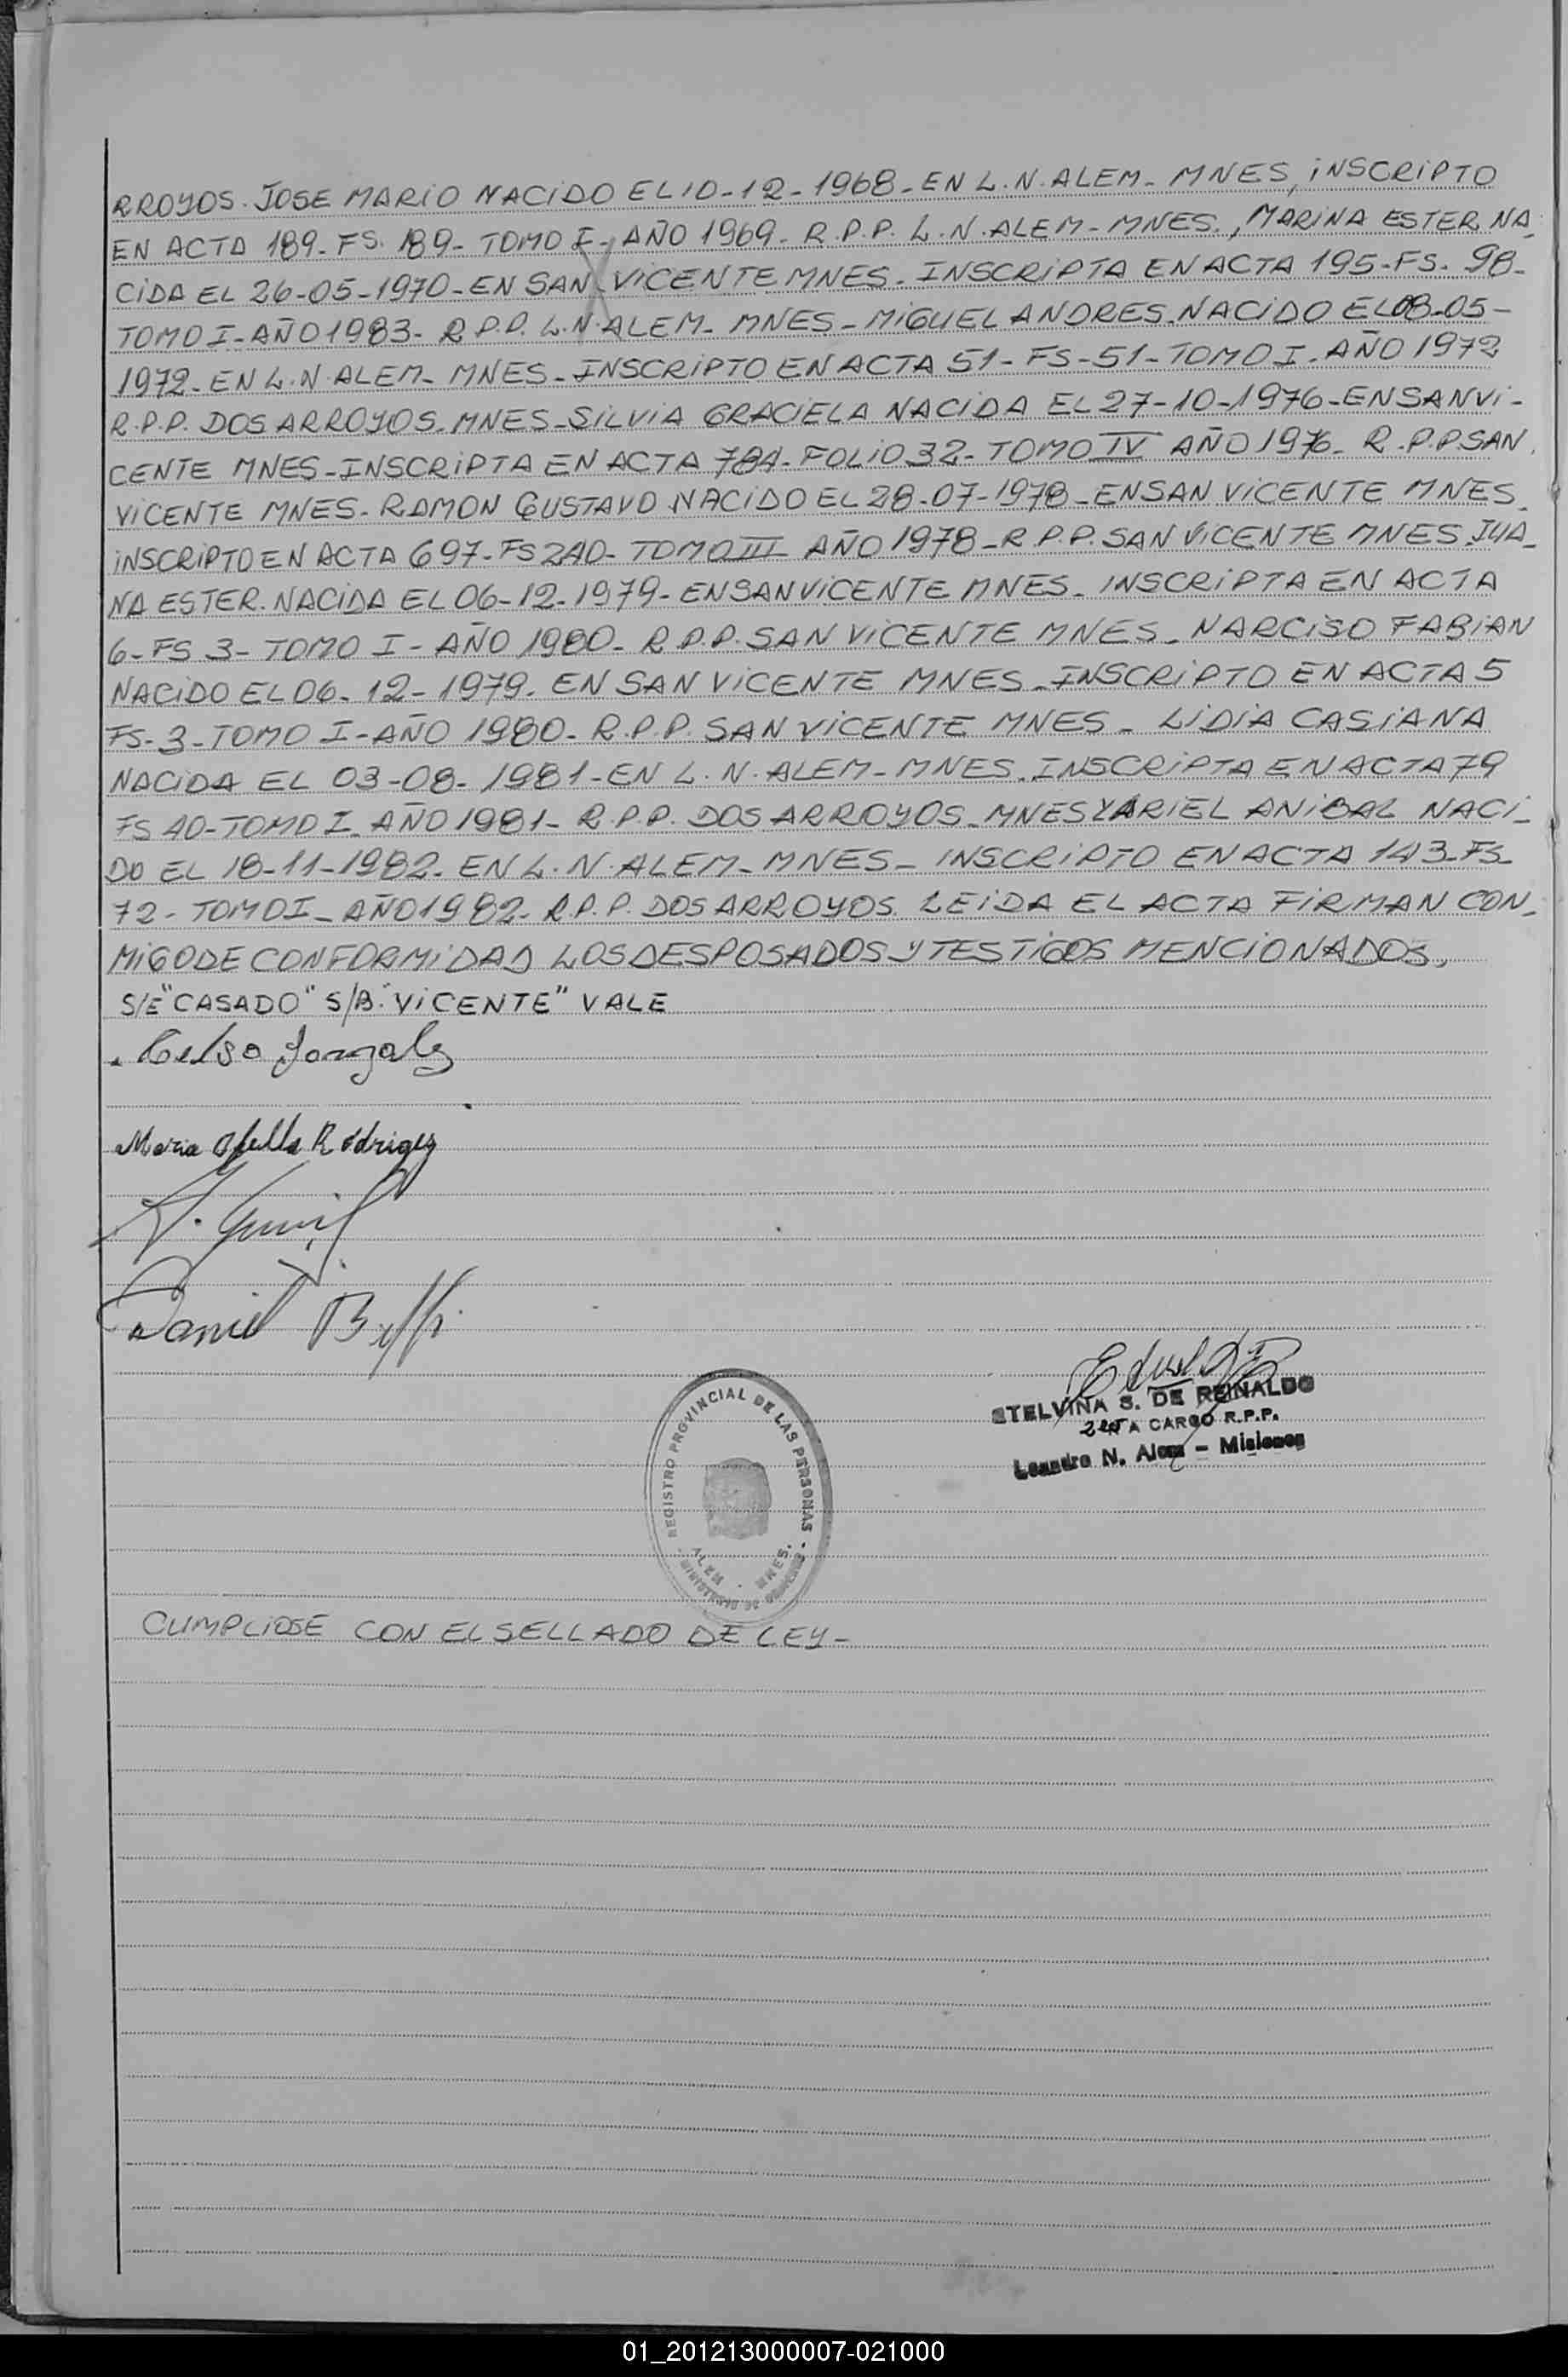 RROYOS. JOSE MARIO NACIDO EL 10-12-1968- EN L.N. ALEM- MNES, INSCRIPTO
EN ACTA 189- FS. 189- TOMO I- AÑO 1969- R.P.P. L.N. ALEM- MNES., MARINA ESTER NA_
CIDA EL 26-05-1970- EN SAN VICENTE MNES- INSCRIPTA EN ACTA 195-FS. 98-
TOMO I- AÑO 1983- R.P.P. L.N. ALEM- MNES- MIGUEL ANDRES NACIDO EL 08-05-
1972- EN L.N. ALEM- MNES- INSCRIPTO EN ACTA 51- FS-51- TOMO I- AÑO 1972
R.P.P. DOS ARROYOS- MNES- SILVIA GRACIELA NACIDA EL 27-10-1976- EN SAN VI-
CENTE MNES- INSCRIPTA EN ACTA 784- FOLIO 32- TOMO IV AÑO 1976- R.P.P SAN
VICENTE MNES- RAMON GUSTAVO NACIDO EL 28-07-1978- EN SAN VICENTE MNES.
INSCRIPTO EN ACTA 697- FS 240- TOMO III AÑO 1978- R.P.P. SAN VICENTE MNES JUA_
NA ESTER. NACIDA EL 06-12-1979- EN SAN VICENTE MNES- INSCRIPTA EN ACTA
6- FS 3- TOMO I- AÑO 1980- R.P.P. SAN VICENTE MNES- NARCISO FABIAN
NACIDO EL 06-12-1979. EN SAN VICENTE MNES- INSCRIPTO EN ACTA 5
FS-3- TOMO I- AÑO 1980- R.P.P. SAN VICENTE MNES- LIDIA CASIANA
NACIDA EL 03-08-1981- EN L.N. ALEM- MNES. INSCRIPTA EN ACTA 79
FS 40- TOMO I AÑO 1981- R.P.P. DOS ARROYOS- MNES Y ARIEL ANIBAL NACI_
DO EL 18-11-1982- EN L.N. ALEM- MNES- INSCRIPTO EN ACTA 143- FS-
72- TOMO I- AÑO 1982- R.P.P. DOS ARROYOS. LEIDA EL ACTA FIRMAN CON_
MIGO DE CONFORMIDAD LOS DESPOSADOS Y TESTIGOS MENCIONADOS.
S/E "CASADO" S/B. "VICENTE" VALE
Celso Gonzalez
Maria Ofelia Rodriguez
Daniel
STELVINA S. DE REINALDO
A CARGO R.P.P.
Leandro N. Alem - Misiones
REGISTRO PROVINCIAL DE LAS PERSONAS
ALEM - MNES.
MINISTERIO DE GOBIERNO
CUMPLIOSE CON EL SELLADO DE LEY-
01_201213000007-021000